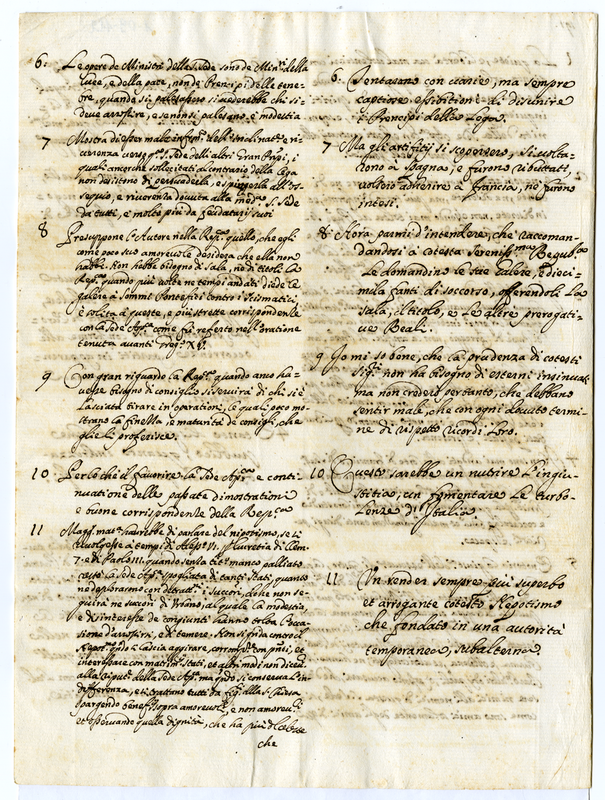 6: Le opere de Ministri della S. Sede sono de Min.ri della
luce, e della pace, non de Prencipi delle tene-
bre, quando si palesassero si vederebbe che si
deve arrossire, e se non si palesano è modestia
7 Mostra di esser male inform.to dell'inclinat.ne e ri-
verenza verso q.ta S. Sede delli altri Gran Prpi, i
quali ancorche sollecitati al contrario della lega
non desistono di persuaderla, e spingerla all'os-
sequio, e riverenza dovuta alla med.ma S. Sede
da tutti, e molto più da feudatarij suoi
8 Presuppone l'Autore nella Rep.ca quello, che egli
come poco suo amorevole desidera che ella non
habbi. Non hebbe bisogno di Sala, nè di titoli la
Rep.ca quando più volte ne tempi andati diede le
galere a Sommi Pontefici contro i Scismatici,
è solita a queste, e più strette corrispondenze
con la Sede Ap.ca come fù referto nell'oratione
tenuta avanti Greg.o XV.
9 Con gran riguardo la Rep.ca quando anco ha-
vesse bisogno di consiglio si servirà di chi si è
lasciato tirare in operationi, le quali poco mo-
strano la finezza, e maturità de consigli, che
glie li proferisce.
10 Perlo che il favorire la Sede Ap.ca e conti-
nuatione delle passate dimostrationi
e buone corrispondenze della Rep.ca
11 Magg. mat.a havrebbe di parlare del nipotismo, se si
rivolgesse a tempi di Aless.o VI.
7. e di Paolo III. quando senza tit.o manco palliato
restò la Sede Ap.ca spogliata di tanti Stati, quanto
ne deplorarono con detrat.ni i succ.ri, il che non se-
guirà ne succ.ri di Urbano, al quale la modestia,
e di interesse de congiunti hanno tolta l'occa-
sione d'arrossirsi, e di temere. Non si grida verso il
Nepot.mo
interessare con mat.ri in Stati, et altri modi non dicevoli
alla Riput.ne della Sede Ap.ca ma q.do si conserva l'in-
differenza, e si trattano tutti da figli alla S. Chiesa
spargendo benef.ij sopra amorevoli, e non amorevoli
et osservando quella dignità, che ha più del celeste
che
6: Tentarano con varie, ma sempre
captiose essibitioni di disunire
i Prencipi della Lega.
7 Ma gli artificij si scopersero, si volta-
rono a Spagna, e furono ributtati,
volsero adherire a Francia, nè furono
intesi.
8: Hora parmi d'intendere, che raccoman-
dandosi à cotesta Sereniss.ma Republica
Le domandino le sue Galere, e dieci-
mila fanti di soccorso, offerendoli La
sala, il titolo, e Le altre prerogati-
ve Reali.
9 Io mi so bene, che la prudenza di cotesti
Sig.ri non ha bisogno di esterni insinuati
ma non credero pertanto, che debbano
sentir male, che con ogni dovuto termi-
ne di rispetto ricordi Loro.
10 Questo sarebbe un nutrire L'ingiu-
stitia; un fomentare Le turbo-
Lenze d'Italia.
11 Un render sempre più superbo
et arrogante cotesto Nepotismo
che fondato in una autorità
temporanea, subalterna.